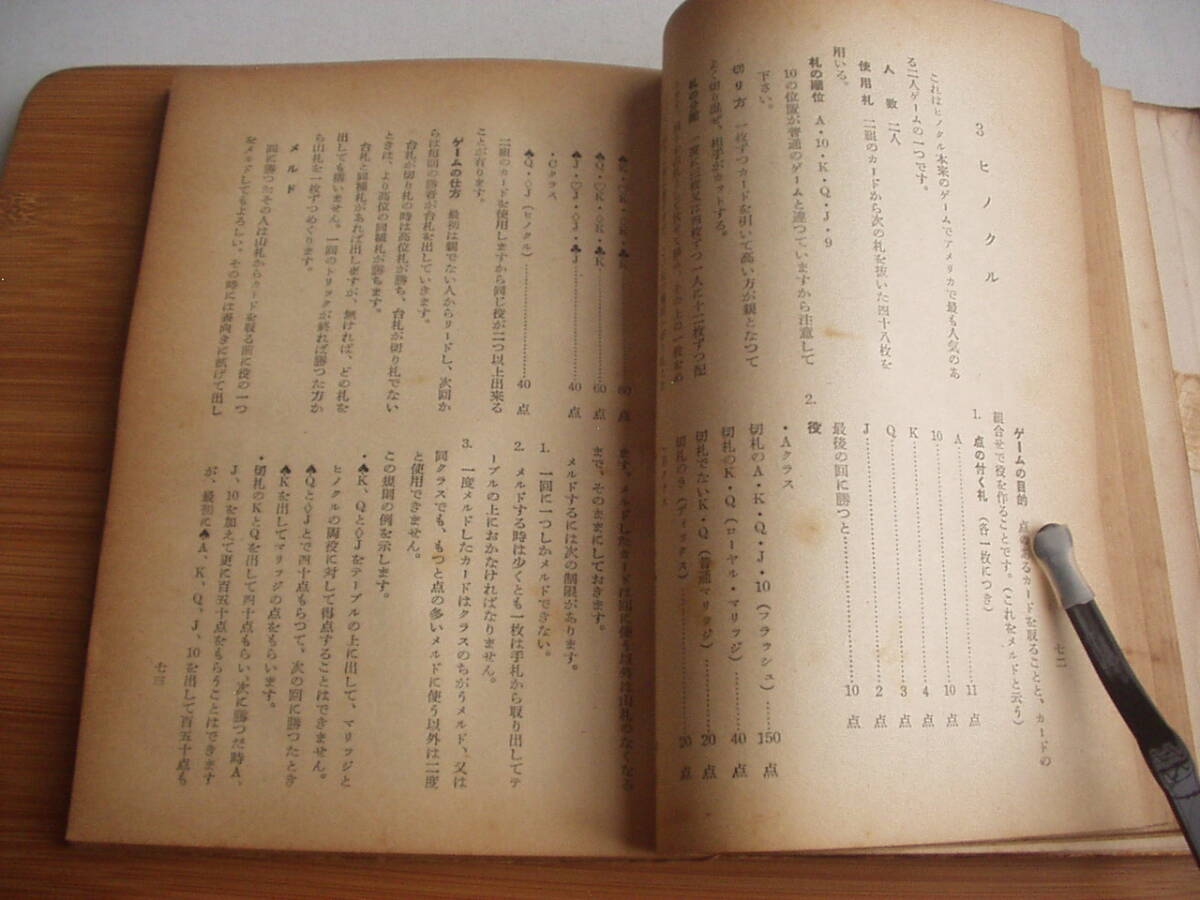 3 ヒノクル
これはヒノクル本来のゲームでアメリカで最も人気のあ
る二人ゲームの一つです。
人数 二人
使用札 二組のカードから次の札を抜いた四十八枚を
用いる。
札の順位 A・10・K・Q・J・9
10の位置が普通のゲームと違つていますから注意して
下さい。
切り方 一枚ずつカードを引いて高い方が親となつて
よく切り混ぜ、相手がカットする。
ゲームの目的 点の
るカードを取ることと、カードの
組合せで役を作ることです。(これをメルドと云う)
1. 点の付く札(各一枚につき)
A……11点
10……10点
K……4点
Q……3点
J……2点
最後の回に勝つと……10点
2. 役
・Aクラス
切札のA・K・Q・J・10(フラッシュ)……150点
切札のK・Q(ローヤル・マリッジ)……40点
切札でないK・Q(普通マリッジ)……20点
切札の9(ディックス)……20点
七二
♠Q・♡K・♢K・♣K……60点
♠J・♡J・♢J・♣J……40点
・Cクラス
♠Q・♢J(ヒノクル)……40点
二組のカードを使用しますから同じ役が二つ以上出来る
ことが有ります。
ゲームの仕方 最初は親でない人からリードし、次回か
らは毎回の勝者が台札を出していきます。
台札が切り札の時は高位札が勝ち、台札が切り札でない
ときは、より高位の同種札が勝ちます。
台札と同種札があれば出しますが、無ければ、どの札を
出しても構いません。一回のトリックが終れば勝つた方か
ら山札を一枚ずつめくります。
メルド
一回に勝つたその人は山札からカードを取る前に役の一つ
をメルドしてもよろしい。その時には表向きに拡げて出し
ます。メルドしたカードは回に使う以外は山札のなくなる
まで、そのままにしておきます。
メルドするには次の制限があります。
1. 一回に一つしかメルドできない。
2. メルドする時は少くとも一枚は手札から取り出してテ
ーブルの上におかなければなりません。
3. 一度メルドしたカードはクラスのちがうメルド、又は
同クラスでも、もつと点の多いメルドに使う以外は二度
と使用できません。
この規則の例を示します。
・♠K、Qと♢Jをテーブルの上に出して、マリッジと
ヒノクルの両役に対して得点することはできません。
♠Qと♢Jとで四十点もらつて、次の回に勝つたとき
♠Kを出してマリッジの点をもらいます。
・切札のKとQを出して四十点もらい、次に勝つた時A、
J、10を加えて更に百五十点をもらうことはできます
が、最初に♠A、K、Q、J、10を出して百五十点も
七三